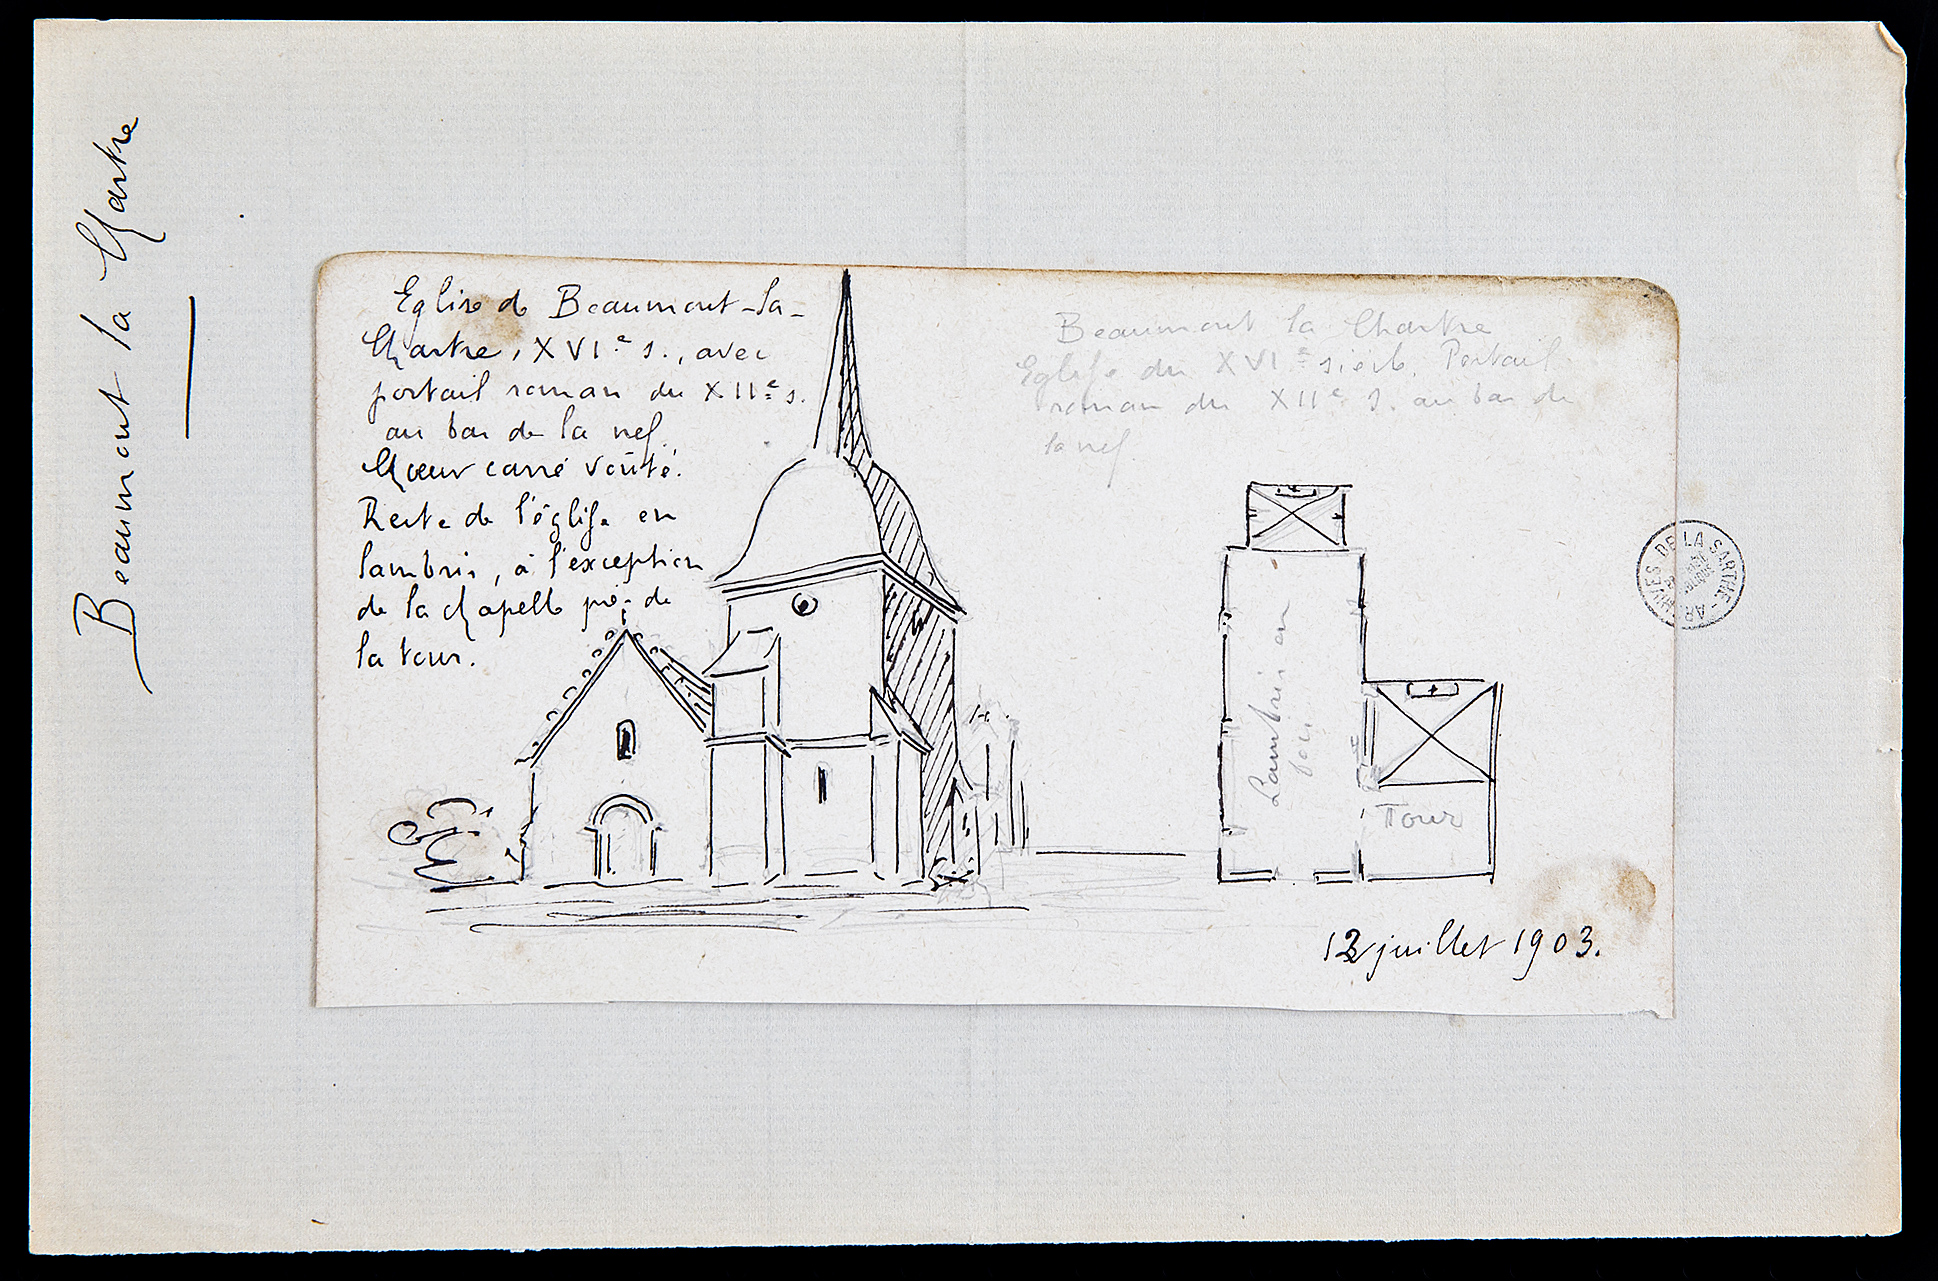 Beaumont la Chartre
Eglise de Beaumont-la-
Chartre, XVIe s., avec
portail roman du XIIe s.
au bas de la nef.
Chœur carré voûté.
Reste de l'église en
lambris, à l'exception
de la chapelle près de
la tour.
Beaumont la Chartre
Eglise du XVIe siècle. Portail
roman du XIIe s. au bas de
la nef
Lambris en
Tour
12 juillet 1903.
ARCHIVES DE LA SARTHE